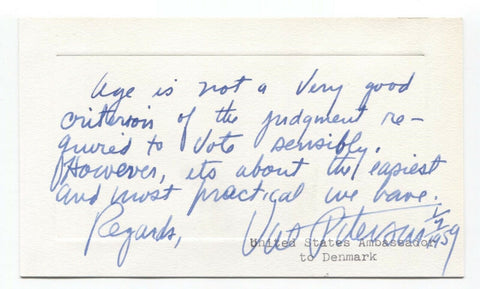 Age is not a very good
criterion of the judgment re-
quired to vote sensibly.
However, its about the easiest
and most practical we have.
Regards, Val Peterson 1/7 1959
United States Ambassador
to Denmark